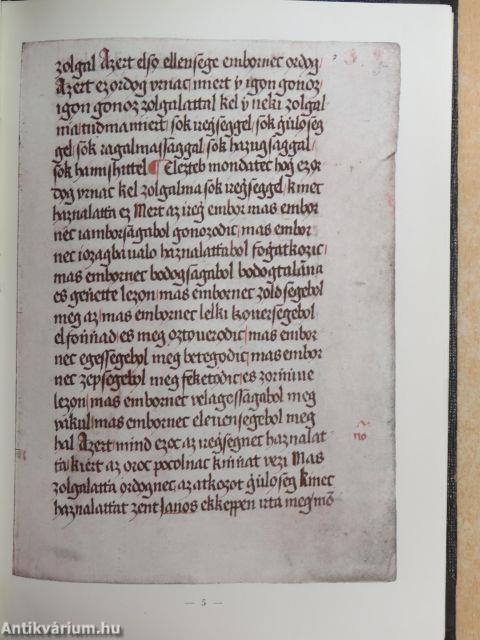 zolgal Azert elso ellensege embornec ordog
Azert ez ordog vrnac mert ÿ igon gonoz
igon gonoz zolgalattal kel ÿ neki zolgal
ma tudma miert sok iregseggel sok gẏloseg
gel sok ragalmassaggal sok hazugsaggal
sok hamishittel ¶ Elezteb mondatec hog ez or
dog vrnac kel zolgalma sok iregseggel kinec
haznalatta ez Mert az ireg embor mas embor
nec iamborsagabol gonozodic mas embor
nec iozagba valo haznalattabol fogatkozic
mas embornec bodogsagabol bodogtalāna
es gehette lezon mas embornec zoldsegebol
meg az mas embornec lelki kouersegebol
el fonnad es meg oztouerodic mas embor
nec egessegebol meg betegodic mas embor
nec zepsegebol meg feketodic es zornṁue
lezon mas embornec velagessagabol meg
vakul mas embornec eleuensegebol meg
hal Azert mind ezoc az iregsegnec haznalat
ta kiert az oroc pocolnac kinnat vezi Mas
zolgalatta ordognec az atkozot gẏloseg kinec
haznalattat zent Janos ekkeppen irta meg mō
— 5 —
Antikvárium.hu